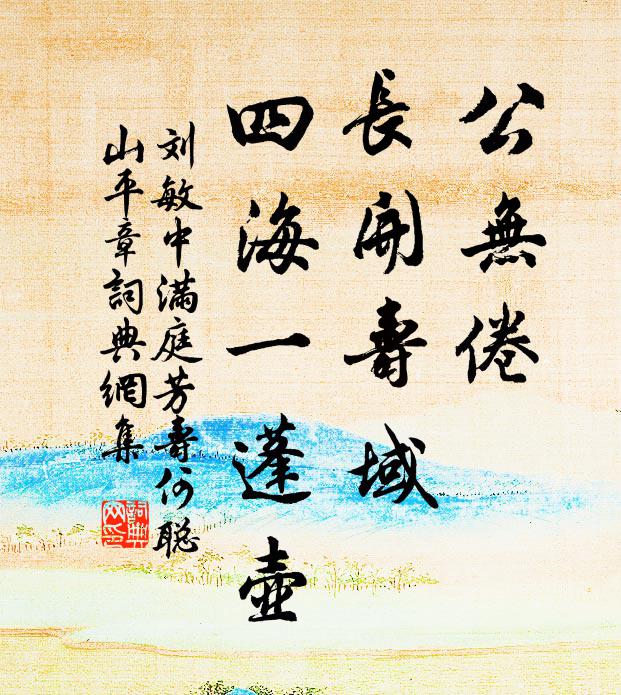 公無倦
長開壽域
四海一蓬壺
刘敏中满庭芳壽何聡
山平章詞典網集
詞典
网印